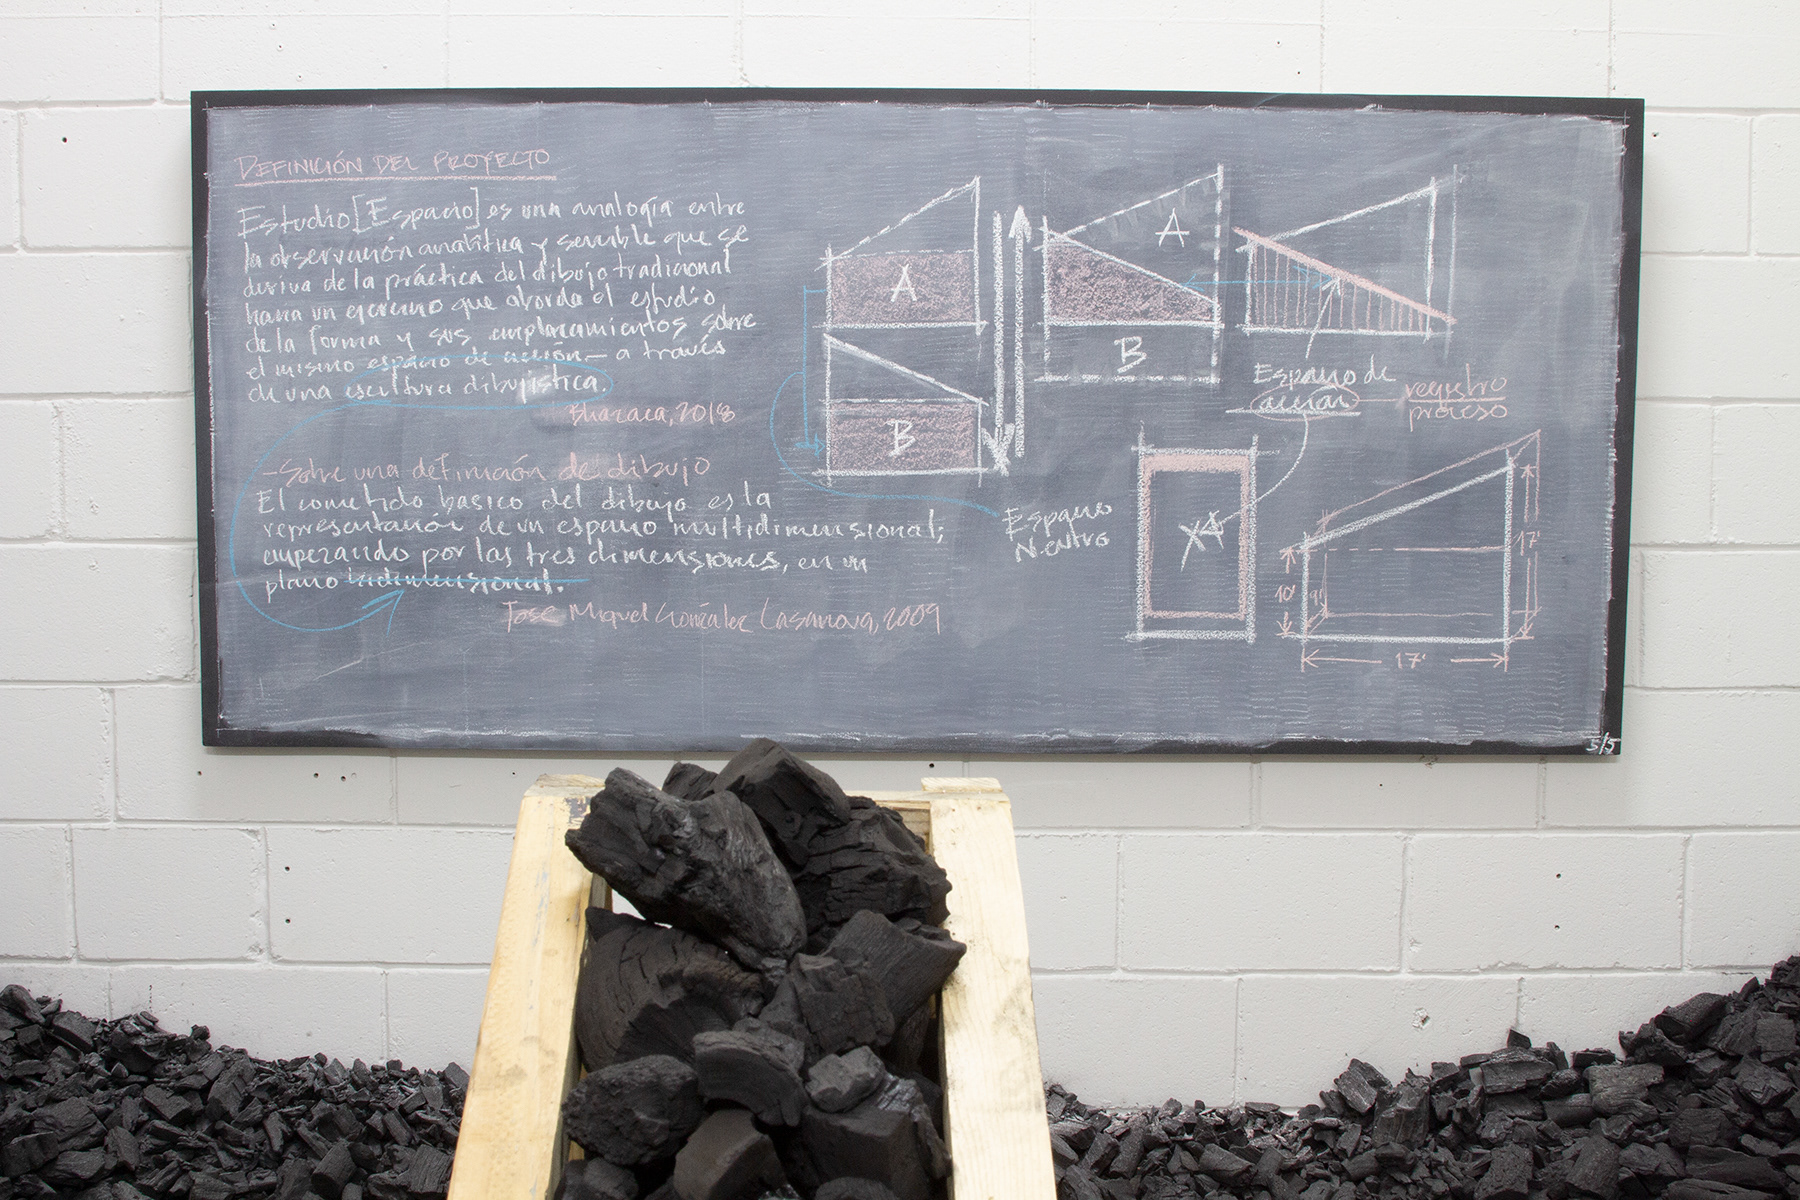 DEFINICIÓN DEL PROYECTO
Estudio [Espacio] es una analogía entre
la observación analítica y sensible que se
deriva de la práctica del dibujo tradicional
hacia un ejercicio que aborda el estudio
de la forma y sus emplazamientos sobre
el mismo espacio de acción— a través
de una escultura dibujística.
2018
-Sobre una definición de dibujo
El cometido basico del dibujo es la
representación de un espacio multidimensional;
empezando por las tres dimensiones, en un
plano bidimensional.
Jose Miguel González Casanova, 2009
A
B
A
B
Espacio de
acción
registro
proceso
Espacio
Neutro
A
10'
9'
17'
17'
5/5